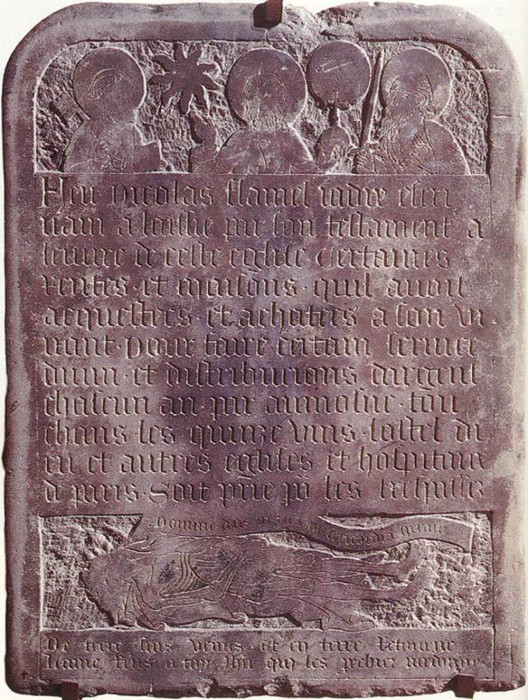 Feu nicolas flamel iadis escri
uain a laissie par son testament a
leuure de ceste eglise certaines
rentes et maisons quil auoit
acquestees et achatees a son vi
uant pour faire certain seruice
diuin et distribucions dargent
chascun an par aumosne tou
chans les quinze vins lostel di
eu et autres eglises et hospitaux
de paris Soit prie po les trespassez
Domine deus in tua misericordia speraui
De terre suis venus et en terre retourne
Lame rens a toy Jhu qui les pechiez pardonne